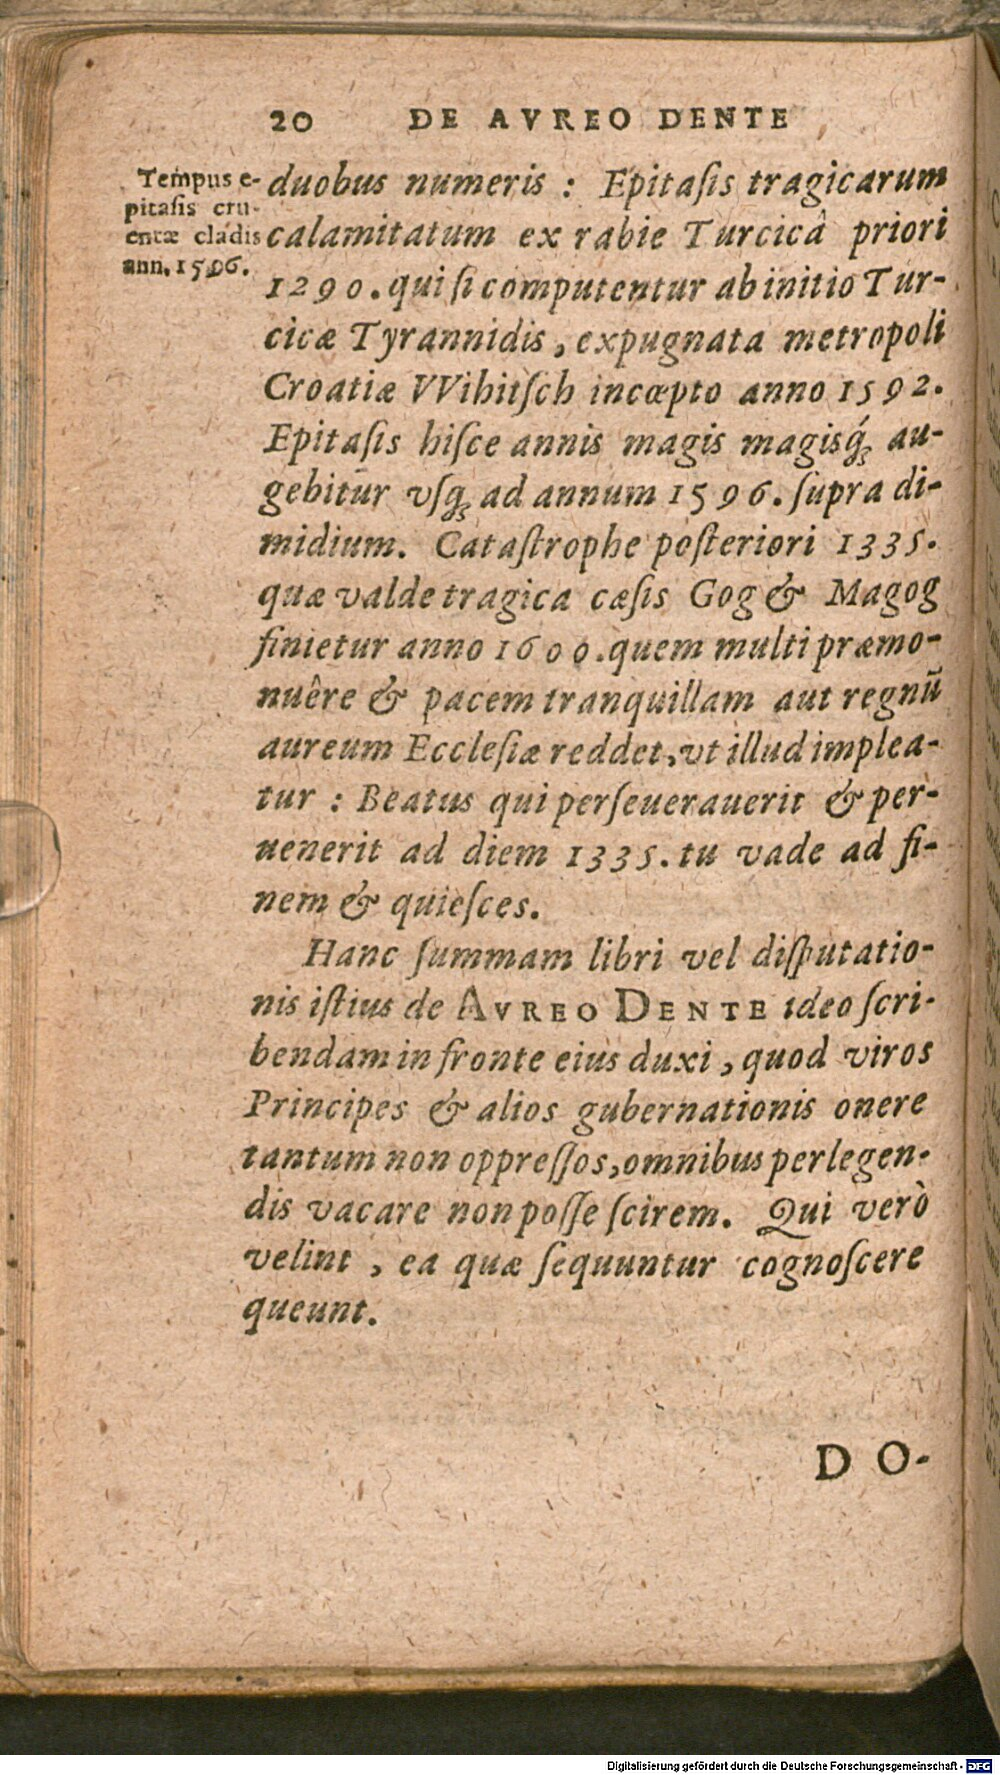 20 DE AVREO DENTE
Tempus e-
pitasis cru-
entæ cladis
ann. 1596.
duobus numeris : Epitaſis tragicarum
calamitatum ex rabie Turcicâ priori
1290. qui ſi computentur ab initio Tur-
cicæ Tyrannidis, expugnata metropoli
Croatiæ VVihitſch incœpto anno 1592.
Epitaſis hiſce annis magis magisq́ꝫ au-
gebitur vſqꝫ ad annum 1596. ſupra di-
midium. Cataſtrophe poſteriori 1335.
quæ valde tragica cæſis Gog & Magog
finietur anno 1600. quem multi præmo-
nuêre & pacem tranquillam aut regnū
aureum Eccleſiæ reddet, vt illud implea-
tur : Beatus qui perſeuerauerit & per-
uenerit ad diem 1335. tu vade ad fi-
nem & quieſces.
Hanc ſummam libri vel diſputatio-
nis iſtius de AVREO DENTE ideo ſcri-
bendam in fronte eius duxi, quod viros
Principes & alios gubernationis onere
tantum non oppreſſos, omnibus perlegen-
dis vacare non poſſe ſcirem. Qui verò
velint, ea quæ ſequuntur cognoſcere
queunt.
DO-
Digitalisierung gefördert durch die Deutsche Forschungsgemeinschaft - DFG